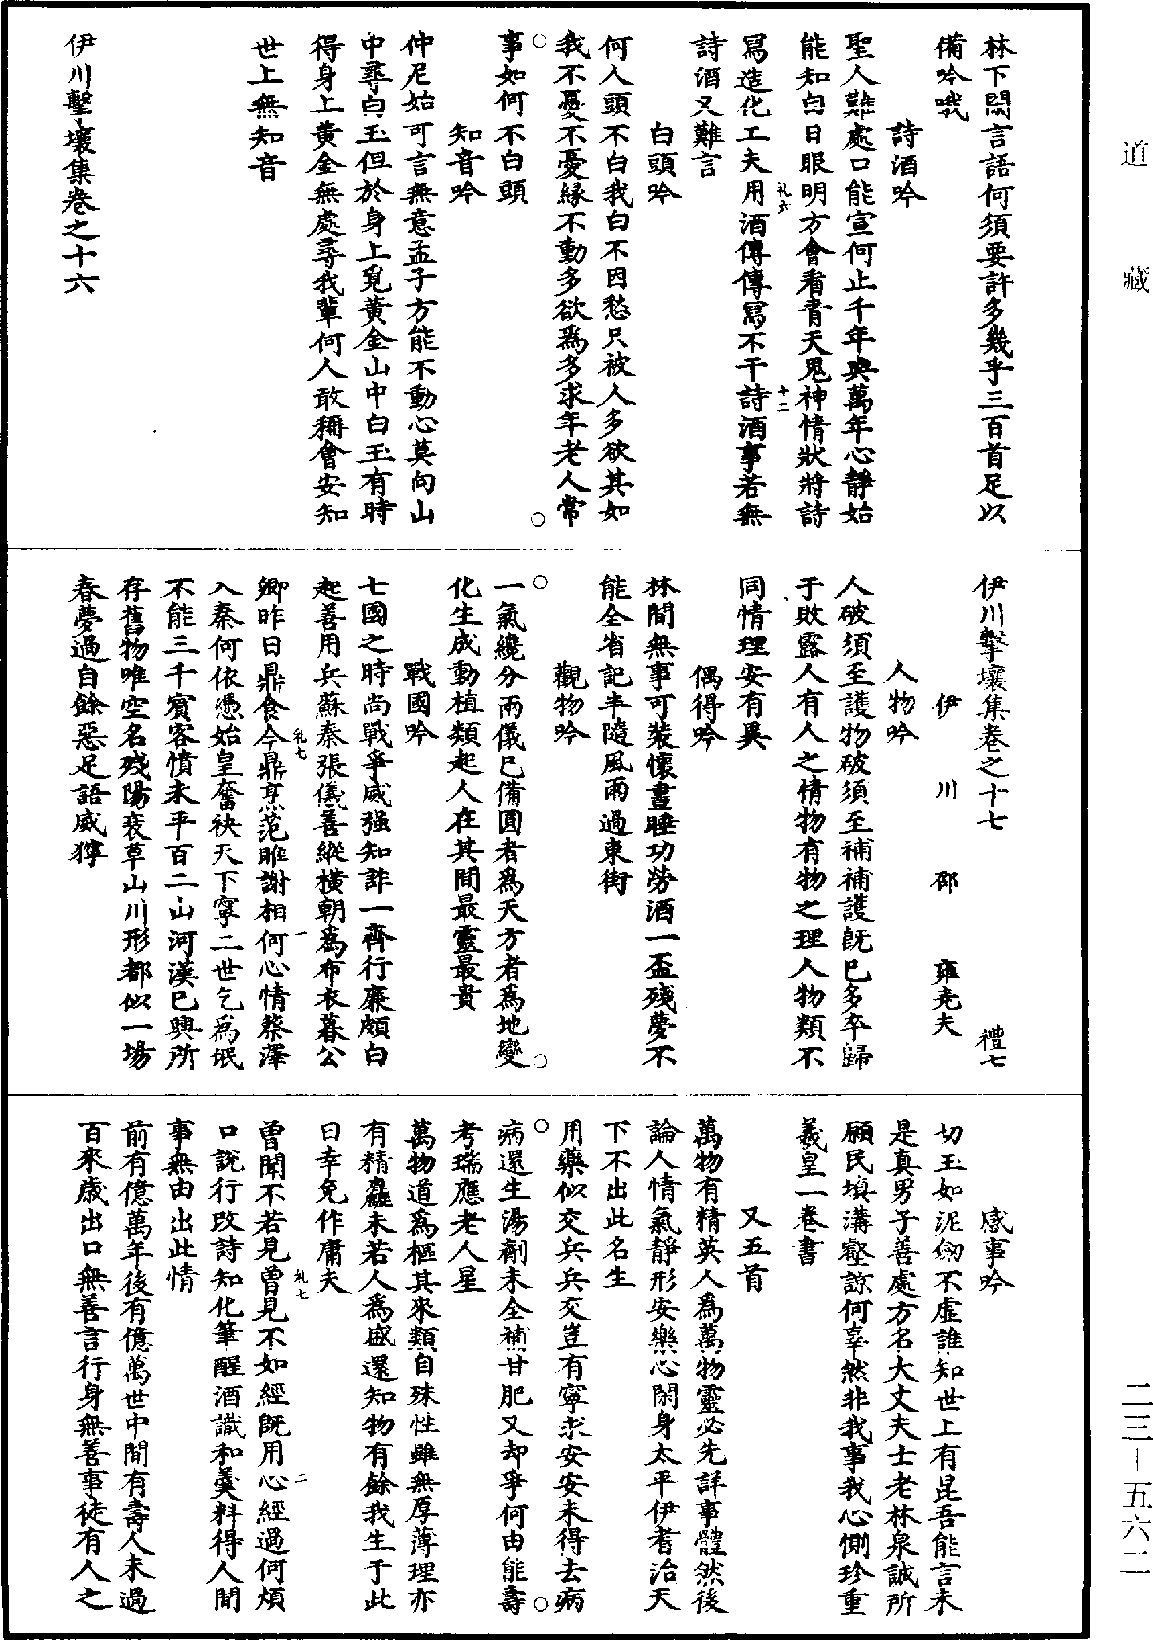 道藏
林下閑言語何須要許多幾乎三百首足以
備吟哦
詩酒吟
聖人難處口能宣何止千年與萬年心靜始
能知白日眼明方會看青天鬼神情狀將詩
寫造化工夫用酒傳傳寫不干詩酒事若無
礼六
十二
詩酒又難言
白頭吟
何人頭不白我白不因愁只被人多欲其如
我不憂不憂緣不動多欲為多求年老人常
事如何不白頭
知音吟
仲尼始可言無意孟子方能不動心莫向山
中尋白玉但於身上覓黃金山中白玉有時
得身上黃金無處尋我輩何人敢稱會安知
世上無知音
伊川擊壤集卷之十六
伊川擊壤集卷之十七
禮七
伊川邵雍堯夫
人物吟
人破須至護物破須至補補護既已多卒歸
于敗露人有人之情物有物之理人物類不
同情理安有異
偶得吟
林間無事可裝懷晝睡功勞酒一盃殘夢不
能全省記半隨風雨過東街
觀物吟
一氣纔分兩儀已備圓者為天方者為地變
化生成動植類起人在其間最靈最貴
戰國吟
七國之時尚戰爭威强知詐一齊行廉頗白
起善用兵蘇秦張儀善縱橫朝為布衣暮公
卿昨日鼎食今鼎烹范睢謝相何心情蔡澤
礼七
一
入秦何依憑始皇奮袂天下寧二世乞為氓
不能三千賓客憤未平百二山河漢已興所
存舊物唯空名殘陽衰草山川形都似一場
春夢過自餘惡足語威獰
感事吟
切玉如泥劒不虛誰知世上有昆吾能言未
是真男子善處方名大丈夫士老林泉誠所
願民填溝壑諒何辜然非我事我心惻珍重
羲皇一卷書
又五首
萬物有精英人為萬物靈必先詳事體然後
論人情氣靜形安樂心閑身太平伊耆治天
下不出此名生
用藥似交兵兵交豈有寧求安安未得去病
病還生湯劑未全補甘肥又却爭何由能壽
考瑞應老人星
萬物道為樞其來類自殊性雖無厚薄理亦
有精麤未若人為盛還知物有餘我生于此
日幸免作庸夫
曾聞不若見曾見不如經既用心經過何煩
礼七
二
口說行改詩知化筆醒酒識和羹料得人間
事無由出此情
前有億萬年後有億萬世中間有壽人未過
百來歲出口無善言行身無善事徒有人之
二三－五六二